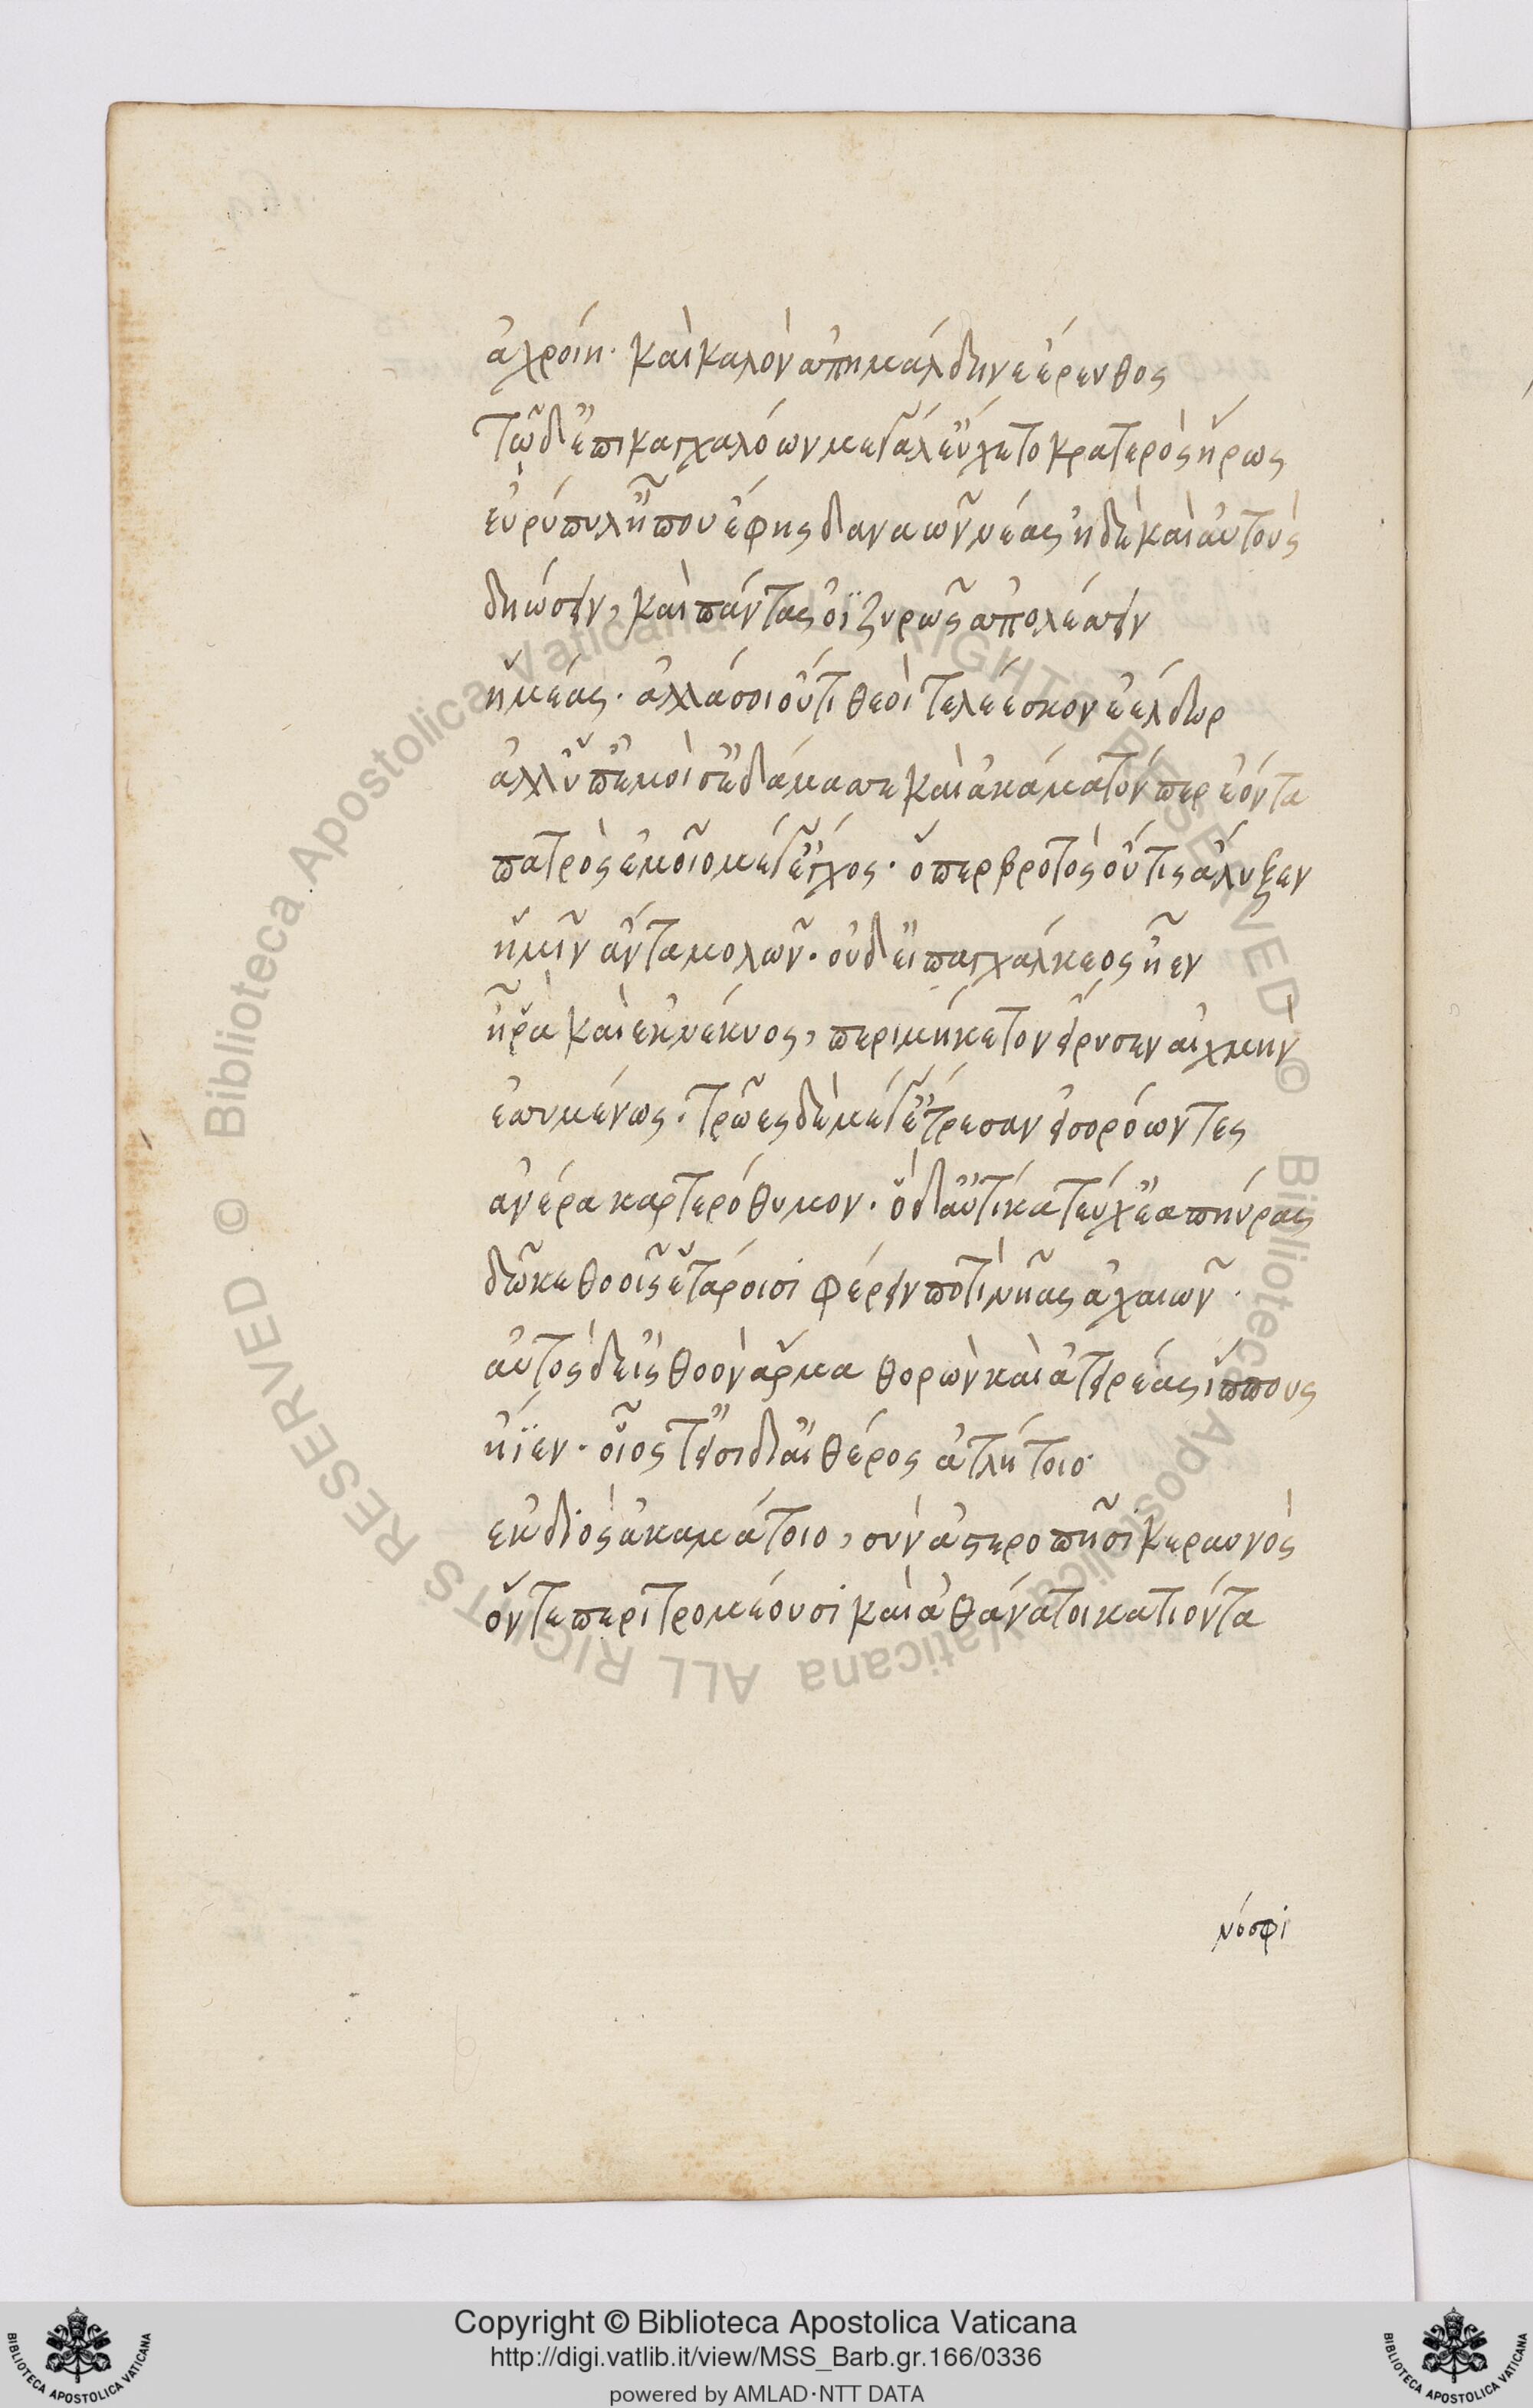 ἀχροίη· καὶ καλὸν ἀπημάλδηνε ἔρευθος
Τῶ δ' ἐπικαγχαλόων μεγάλ' εὔχετο κρατερὸς ἥρως
εὐρύπυλ' ἦ που ἔφης δαναῶν νέας ἠδὲ καὶ αὐτοὺς
δηώσειν, καὶ πάντας ὀϊζυρῶς ἀπολέσσειν
ἡμέας· ἀλλά σοι οὔτι θεοὶ τελέεσκον ἐέλδωρ
ἀλλ' ὑπ' ἐμοί σ' ἐδάμασσε καὶ ἀκάματόν περ ἐόντα
πατρὸς ἐμοῖο μέγ' ἔγχος· ὅπερ βροτὸς οὔτις ἄλυξεν
ἡμῖν ἄντα μολῶν· οὐδ' εἰ παγχάλκεος ἦεν
ἦ ῥα καὶ ἐκ νέκυος, περιμήκετον εἴρυσεν αἰχμὴν
ἐσσυμένως· Τρῶες δὲ μέγ' ἔτρεσαν εἰσορόωντες
ἀνέρα καρτερόθυμον· ὁ δ' αὐτίκα τεύχε' ἀπηύρας
δῶκε θοοῖς ἑτάροισι φέρειν ποτὶ νῆας ἀχαιῶν·
αὐτὸς δ' εἰς θοὸν ἅρμα θορὼν καὶ ἀτειρέας ἵππους
ἤϊεν· οἷος τ' εἶσι δι' αἰθέρος ἀτλήτοιο·
ἐκ διὸς ἀκαμάτοιο, σὺν ἀστεροπῆσι κεραυνὸς
ὅντε περιτρομέουσι καὶ ἀθάνατοι κατιόντα
νόσφι
Copyright © Biblioteca Apostolica Vaticana
http://digi.vatlib.it/view/MSS_Barb.gr.166/0336
powered by AMLAD·NTT DATA